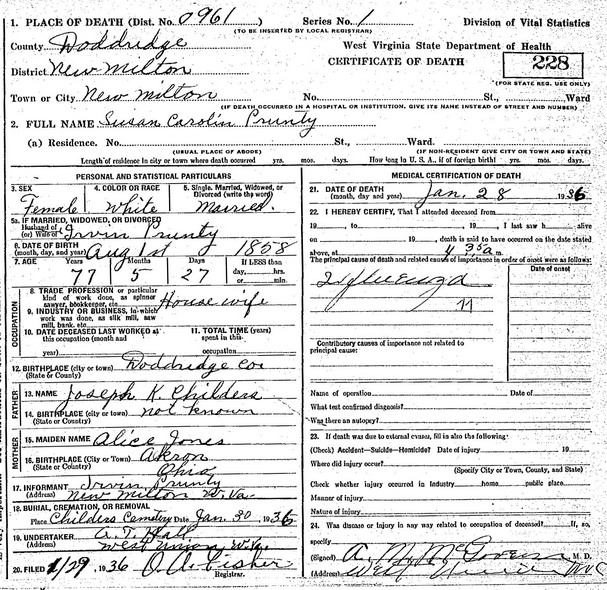 1. PLACE OF DEATH (Dist. No. 0961 ) Series No. 1 Division of Vital Statistics
(TO BE INSERTED BY LOCAL REGISTRAR)
County Doddridge West Virginia State Department of Health
CERTIFICATE OF DEATH 228
District New Milton (FOR STATE REG. USE ONLY)
Town or City New Milton No. St., Ward
(IF DEATH OCCURRED IN A HOSPITAL OR INSTITUTION, GIVE ITS NAME INSTEAD OF STREET AND NUMBER)
2. FULL NAME Susan Carolin Prunty
(a) Residence. No. St., Ward.
(USUAL PLACE OF ABODE) (IF NON-RESIDENT GIVE CITY OR TOWN AND STATE)
Length of residence in city or town where death occurred yrs. mos. days. How long in U. S. A., if of foreign birth? yrs. mos. days.
PERSONAL AND STATISTICAL PARTICULARS
3. SEX 4. COLOR OR RACE 5. Single, Married, Widowed, or Divorced (write the word)
Female White Married.
5a. IF MARRIED, WIDOWED, OR DIVORCED
Husband of
(or) Wife of Irvin Prunty
6. DATE OF BIRTH
(month, day, and year) Aug 1st 1858
7. AGE Years Months Days If LESS than
77 5 27 day, hrs.
or min.
OCCUPATION
8. TRADE PROFESSION or particular
kind of work done, as spinner
sawyer, bookkeeper, etc. House wife
9. INDUSTRY OR BUSINESS, in which
work was done, as silk mill, saw
mill, bank, etc.
10. DATE DECEASED LAST WORKED at 11. TOTAL TIME (years)
this occupation (month and spent in this
year) occupation
12. BIRTHPLACE (city or town) Doddridge Co
(State or County)
FATHER
13. NAME Joseph K. Childers
14. BIRTHPLACE (city or town) not known
(State or County)
MOTHER
15. MAIDEN NAME Alice Jones
16. BIRTHPLACE (City or Town) Akron
(State or Country) Ohio
17. INFORMANT Irvin Prunty
(Address) New Milton W. Va.
18. BURIAL, CREMATION, OR REMOVAL
Place Childers Cemetery Date Jan. 30, 1936
19. UNDERTAKER A. T.
(Address) West Union, W. Va.
20. FILED 1/29, 1936 Registrar.
MEDICAL CERTIFICATION OF DEATH
21. DATE OF DEATH
(month, day and year) Jan. 28 1936
22. I HEREBY CERTIFY, That I attended deceased from
19 , to , 19 , I last saw h alive
on , 19 , death is said to have occurred on the date stated
above, at 4 35a m.
The principal cause of death and related causes of importance in order of onset were as follows:
Date of onset
Influenza
11
Contributory causes of importance not related to
principal cause:
Name of operation Date of
What test confirmed diagnosis?
Was there an autopsy?
23. If death was due to external causes, fill in also the following:
(Check) Accident—Suicide—Homicide? Date of injury 19
Where did injury occur?
(Specify City or Town, County, and State)
Check whether injury occurred in Industry home public place
Manner of injury
Nature of injury
24. Was disease or injury in any way related to occupation of deceased? If, so,
specify
(Signed) A. M. McGovern M. D.
(Address) West Union W Va